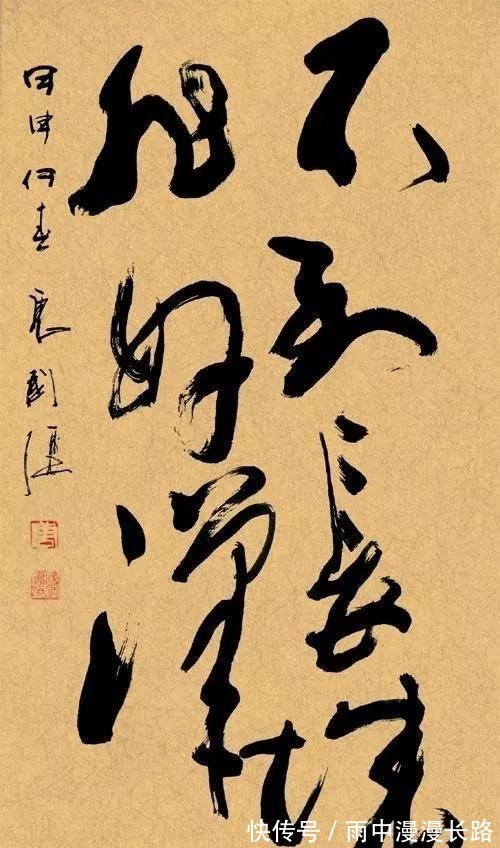 不到長城
非好漢
甲申仲春
快传号 / 雨中漫漫长路